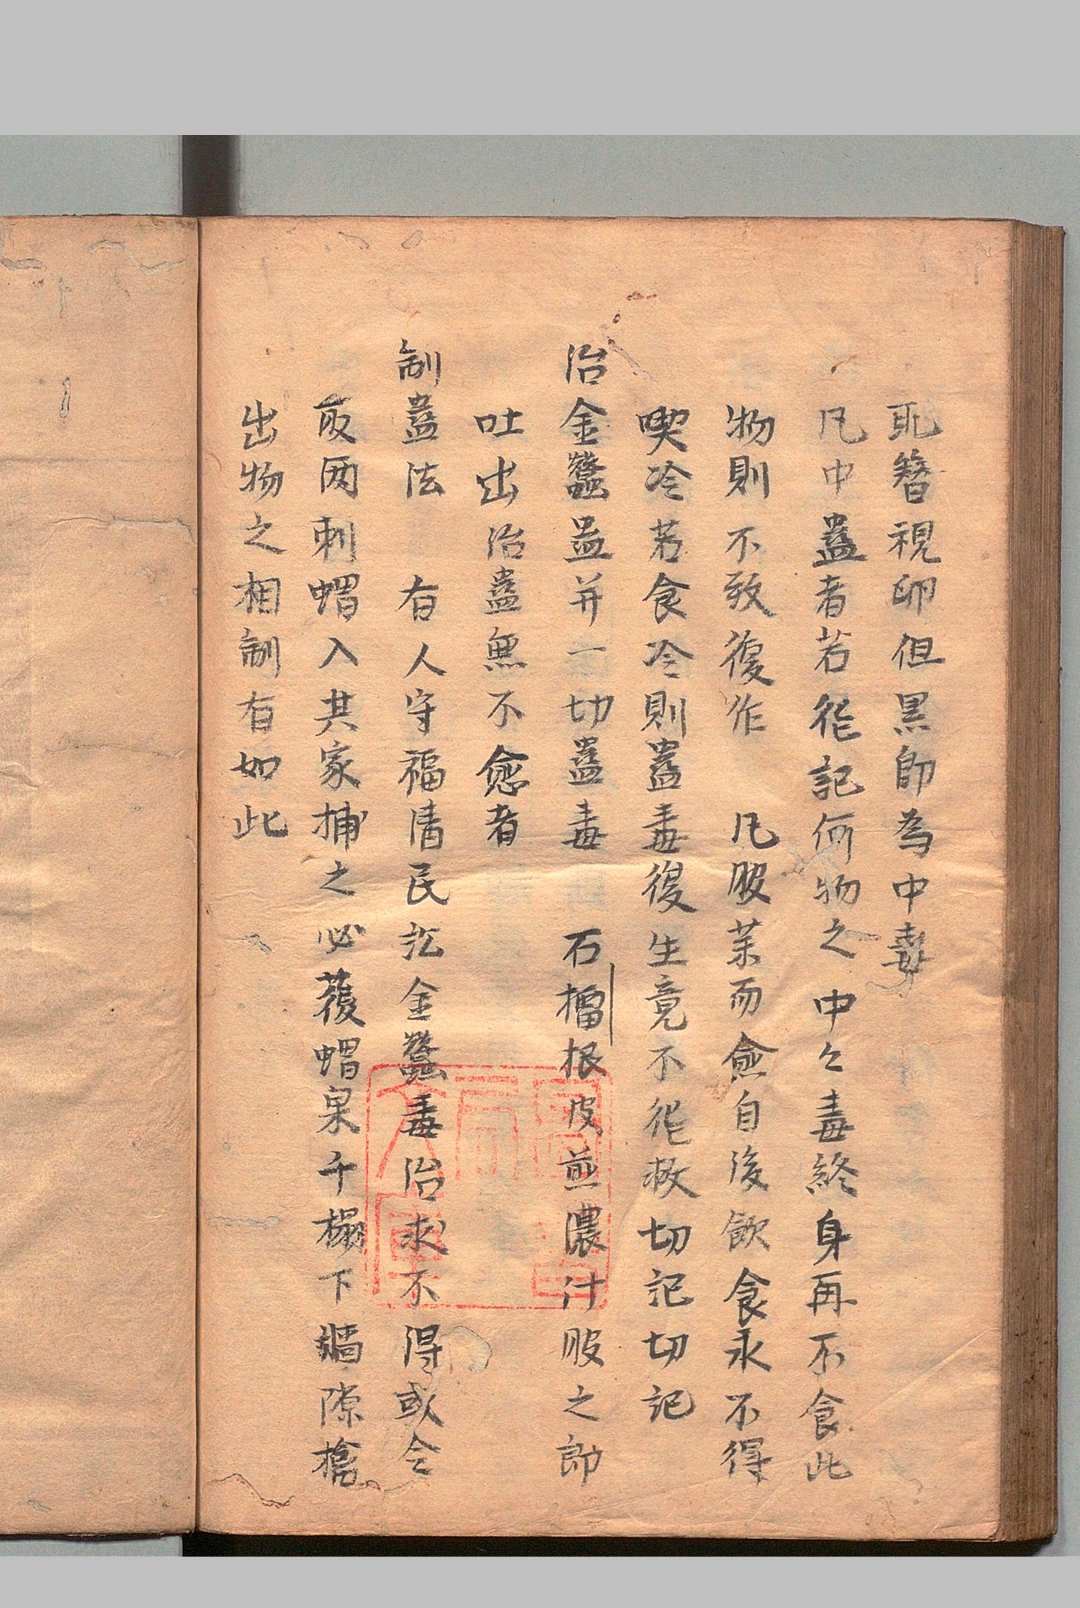 取簪視卵但黒即為中毒
凡中蠱者若能記何物之中之毒終身再不食此
物則不致復作　凡服茉而愈自後飲食永不得
喫冷若食冷則蠱毒復生竟不能救切記切記
治金蠶蠱并一切蠱毒　石榴根皮煎濃汁服之即
吐出治蠱無不愈者
制蠱法　有人守福清民訟金蠶毒治求不得或令
取两刺蝟入其家捕之必獲蝟果于榻下墻隙擒
出物之相制有如此